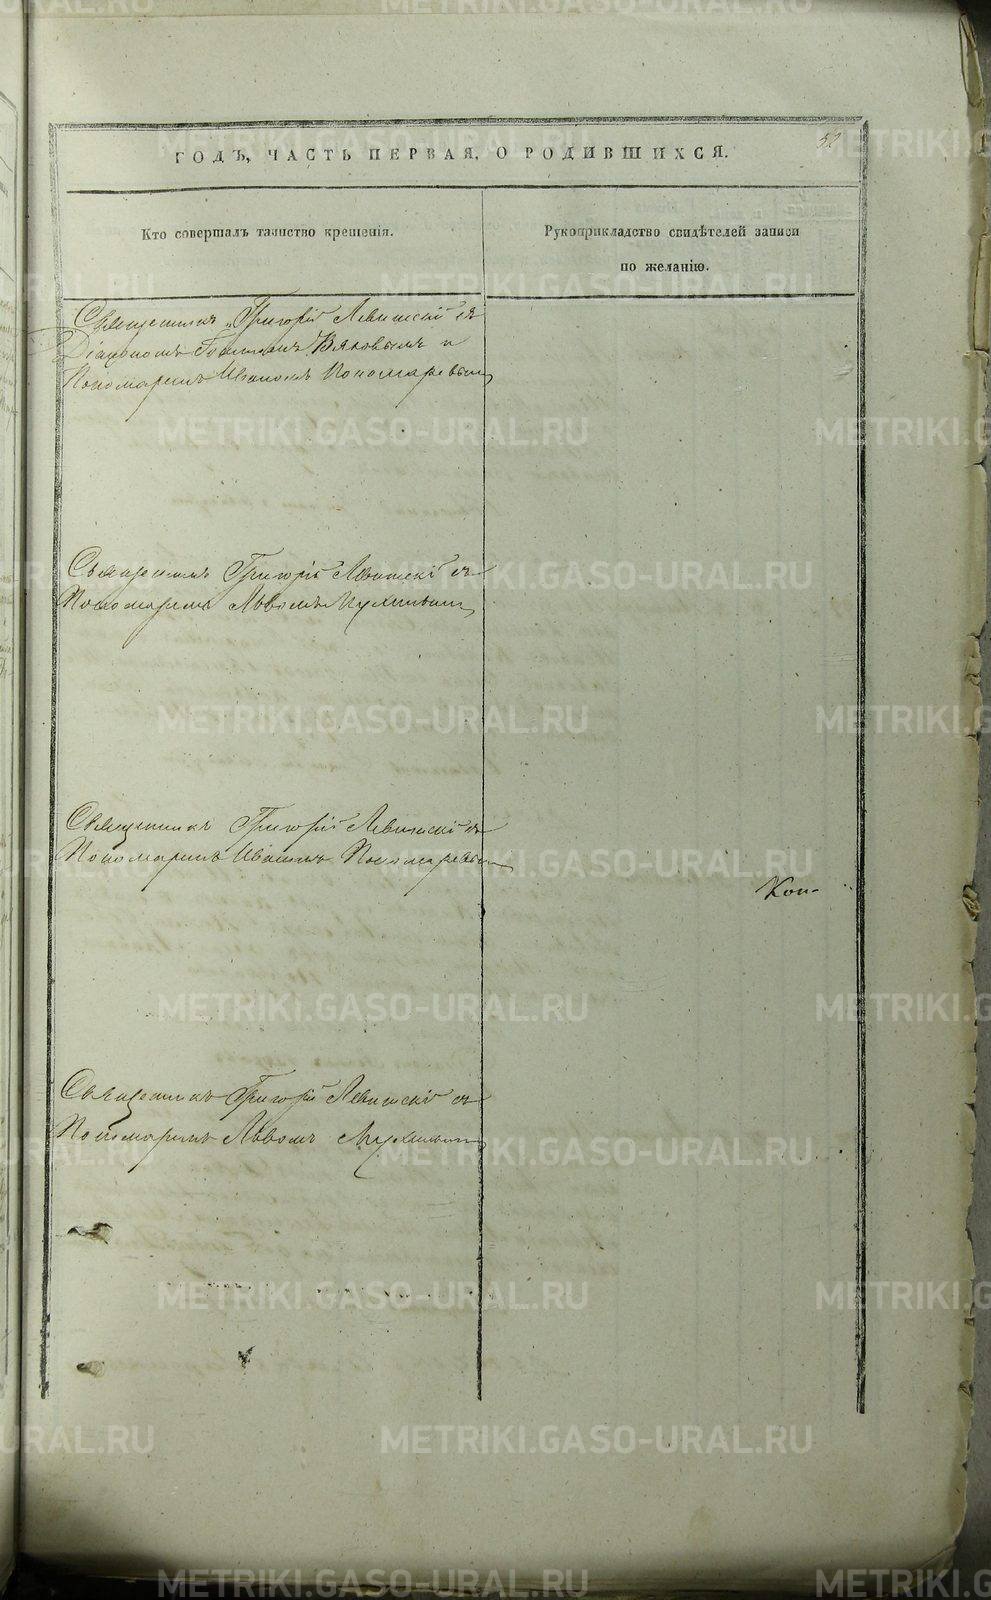 52
ГОДЪ, ЧАСТЬ ПЕРВАЯ, О РОДИВШИХСЯ.
Кто совершалъ таинство крещенія.
Рукоприкладство свидѣтелей записи
по желанію.
Священникъ Григорій Левитскій съ
Діакономъ Вяковымъ и
Пономаремъ Иваномъ Пономаревымъ
Священникъ Григорій Левитскій съ
Пономаремъ Львомъ Мухинымъ
Священникъ Григорій Левитскій съ
Пономаремъ Иваномъ Пономаревымъ
Кон-
Священникъ Григорій Левитскій съ
Пономаремъ Львомъ Мухинымъ
METRIKI.GASO-URAL.RU